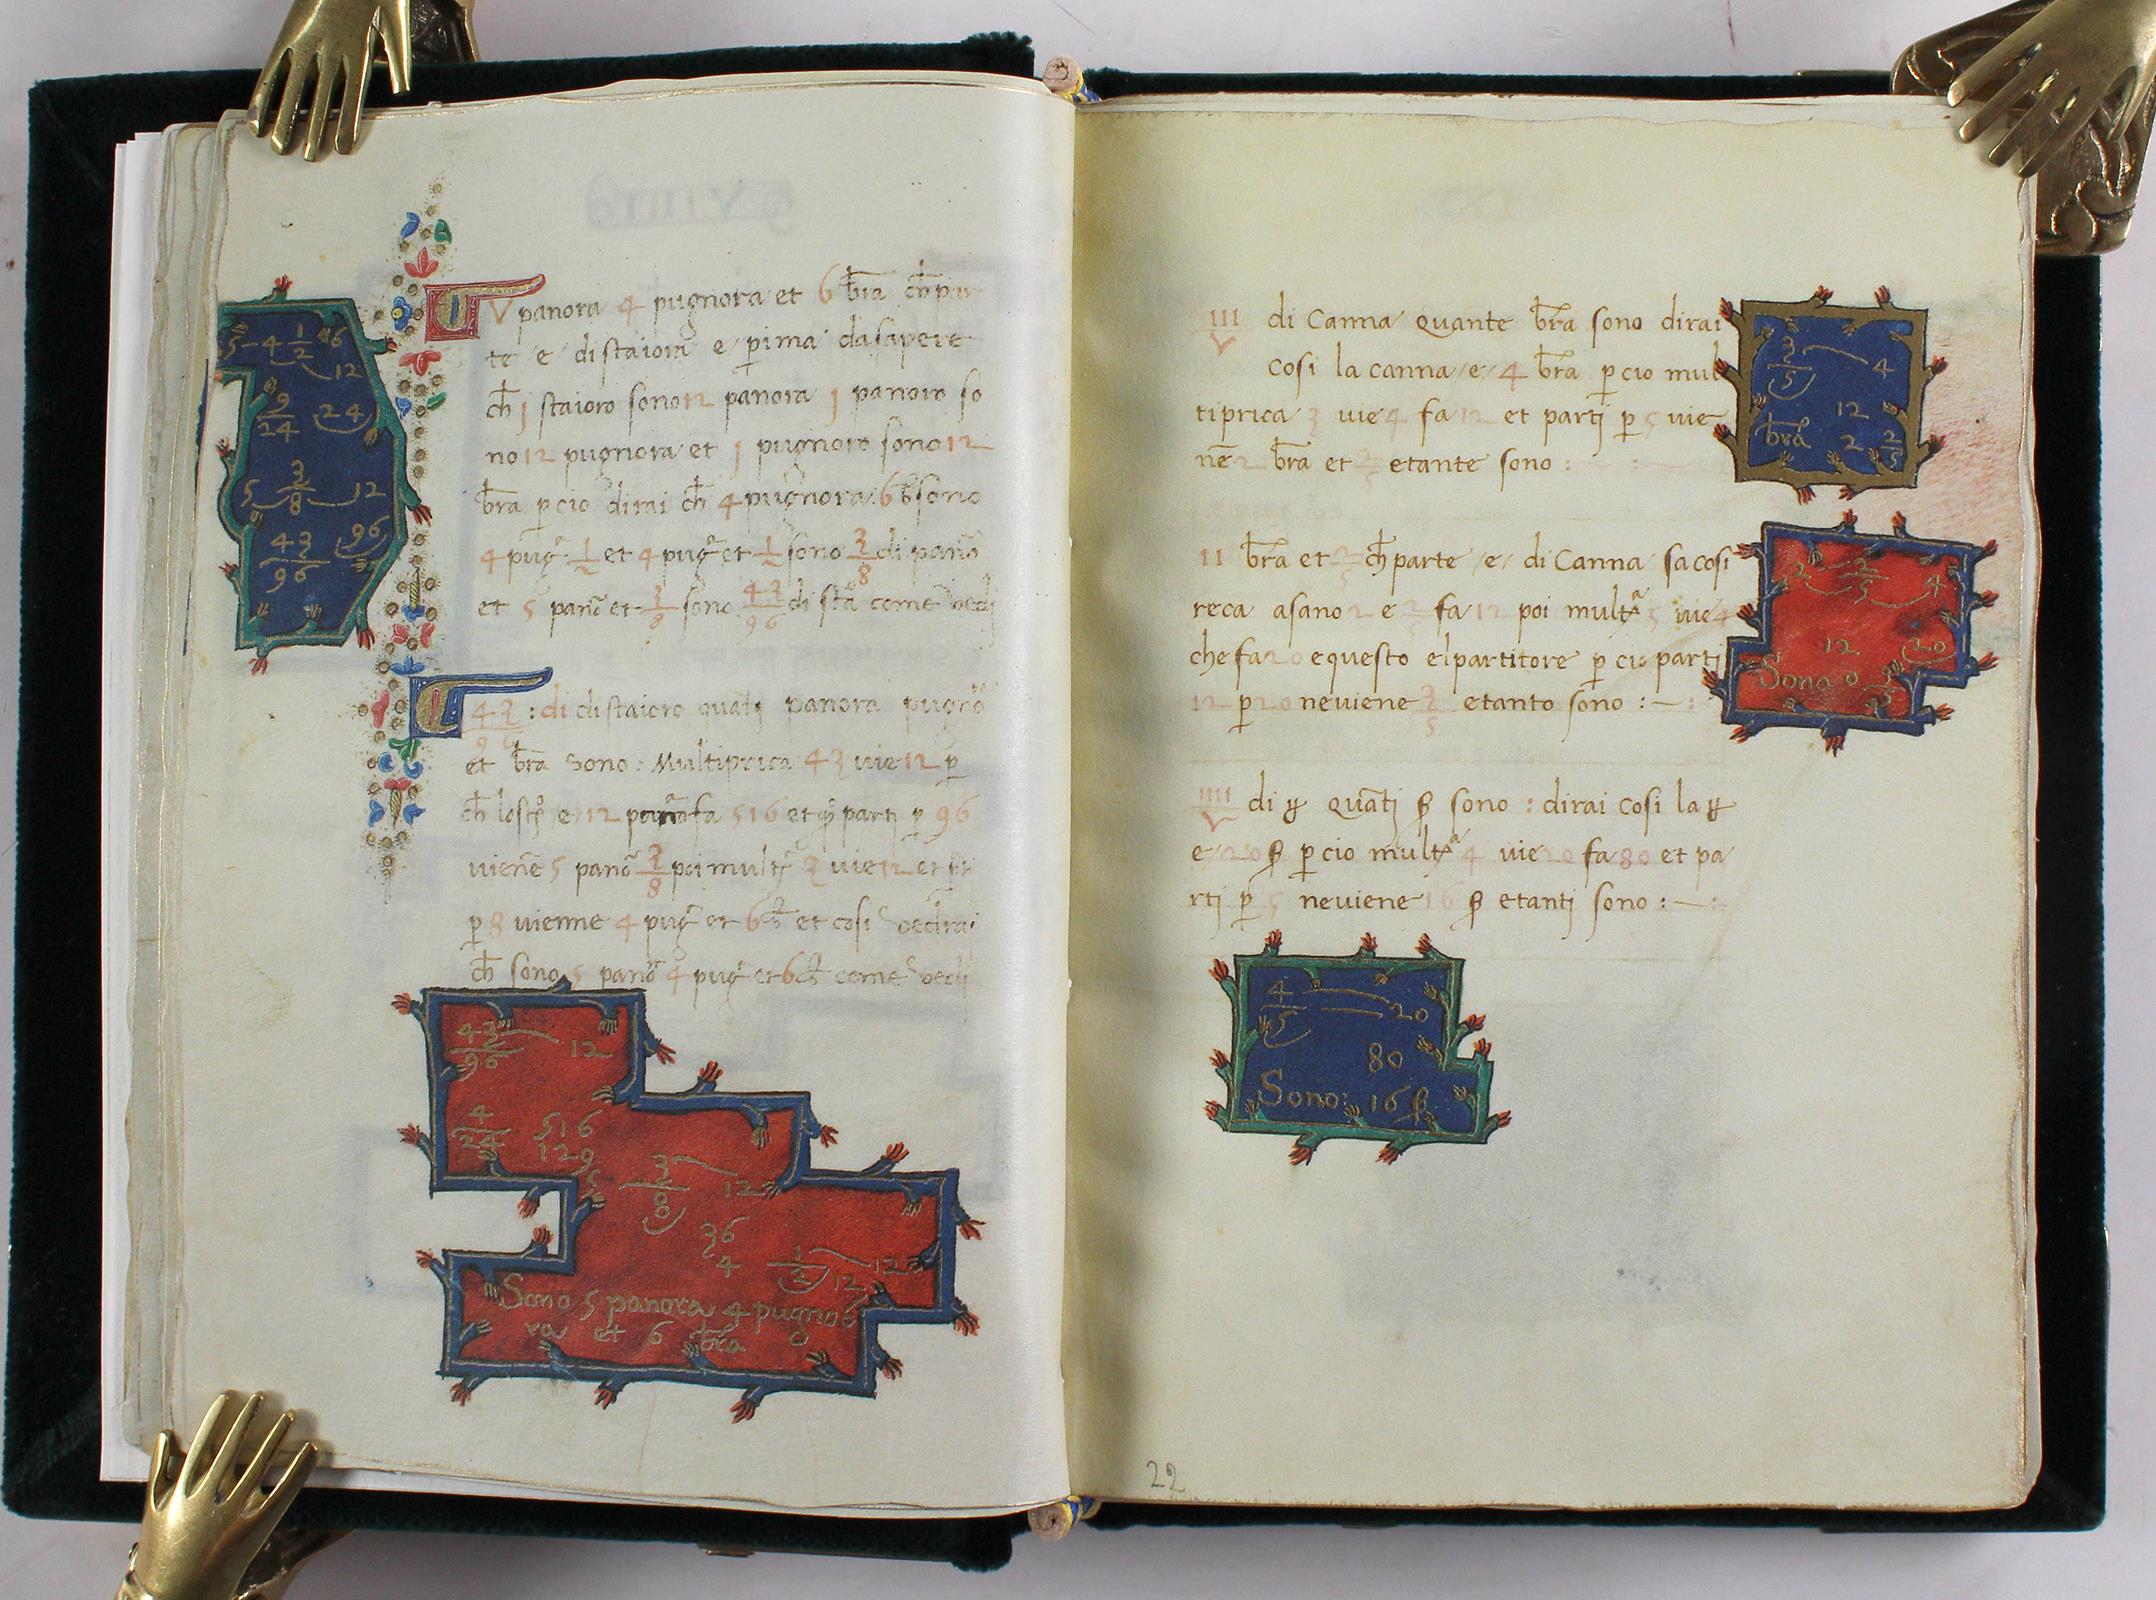 V panora 4 pugnora et 6 b̄ra ch̄ par
te e di staiora e p̱rima da sapere
ch̄ 1 staioro sono 12 panora 1 panoro so
no 12 pugnora et 1 pugnoro sono 12
b̄ra p̱ cio dirai ch̄ 4 pugnora 6 b̄ sono
4 pug̃ ½ et 4 pug̃ et ½ sono 3/8 di pano
et 5 pano et 3/8 sono 43/96 di sta come vedi
43/96 : di di staioro quatj panora pugno
et b̄ra sono : Multiprica 43 vie 12 p̱
ch̄ lo sto e 12 pano fa 516 et parti p̱ 96
viene 5 pano 3/8 poi mult 3 vie 12 et
p̱ 8 vienne 4 pug̃ et 6 et cosi vedrai
ch̄ sono 5 pano 4 pug̃ et 6 come vedi
5 - 4 1/2 6
12
9/24 24
5 3/8 12
43/96 96
43/96 12
4/24 516
129
3/8 12
36
4 1/2 12
12
Sono 5 panora 4 pugno 6
ra et 6 b̄ra
III/V di Canna quante b̄ra sono dirai
cosi la canna e 4 b̄ra p̱ cio mul
tiprica 3 vie 4 fa 12 et partj p̱ 5 vie
nē 2 b̄ra et 2/5 e tante sono :
II b̄ra et 2/5 ch̄ parte e di Canna fa cosi
reca a sano 2 e 2/5 fa 12 poi mult 5 vie 4
che fa 20 e questo el partitore p̱ cio parti
12 p̱ 20 ne viene 3/5 e tanto sono : —
IIII/V di quātj sono : dirai cosi la
e 20 p̱ cio mult 4 vie 20 fa 80 et pa
rtj p̱ 5 ne viene 16 e tantj sono : —
3/5 4
12
b̄ra 2 2/5
2 2/5 4
12 20
Sono 0 3/5
4/5 20
80
Sono : 16
22